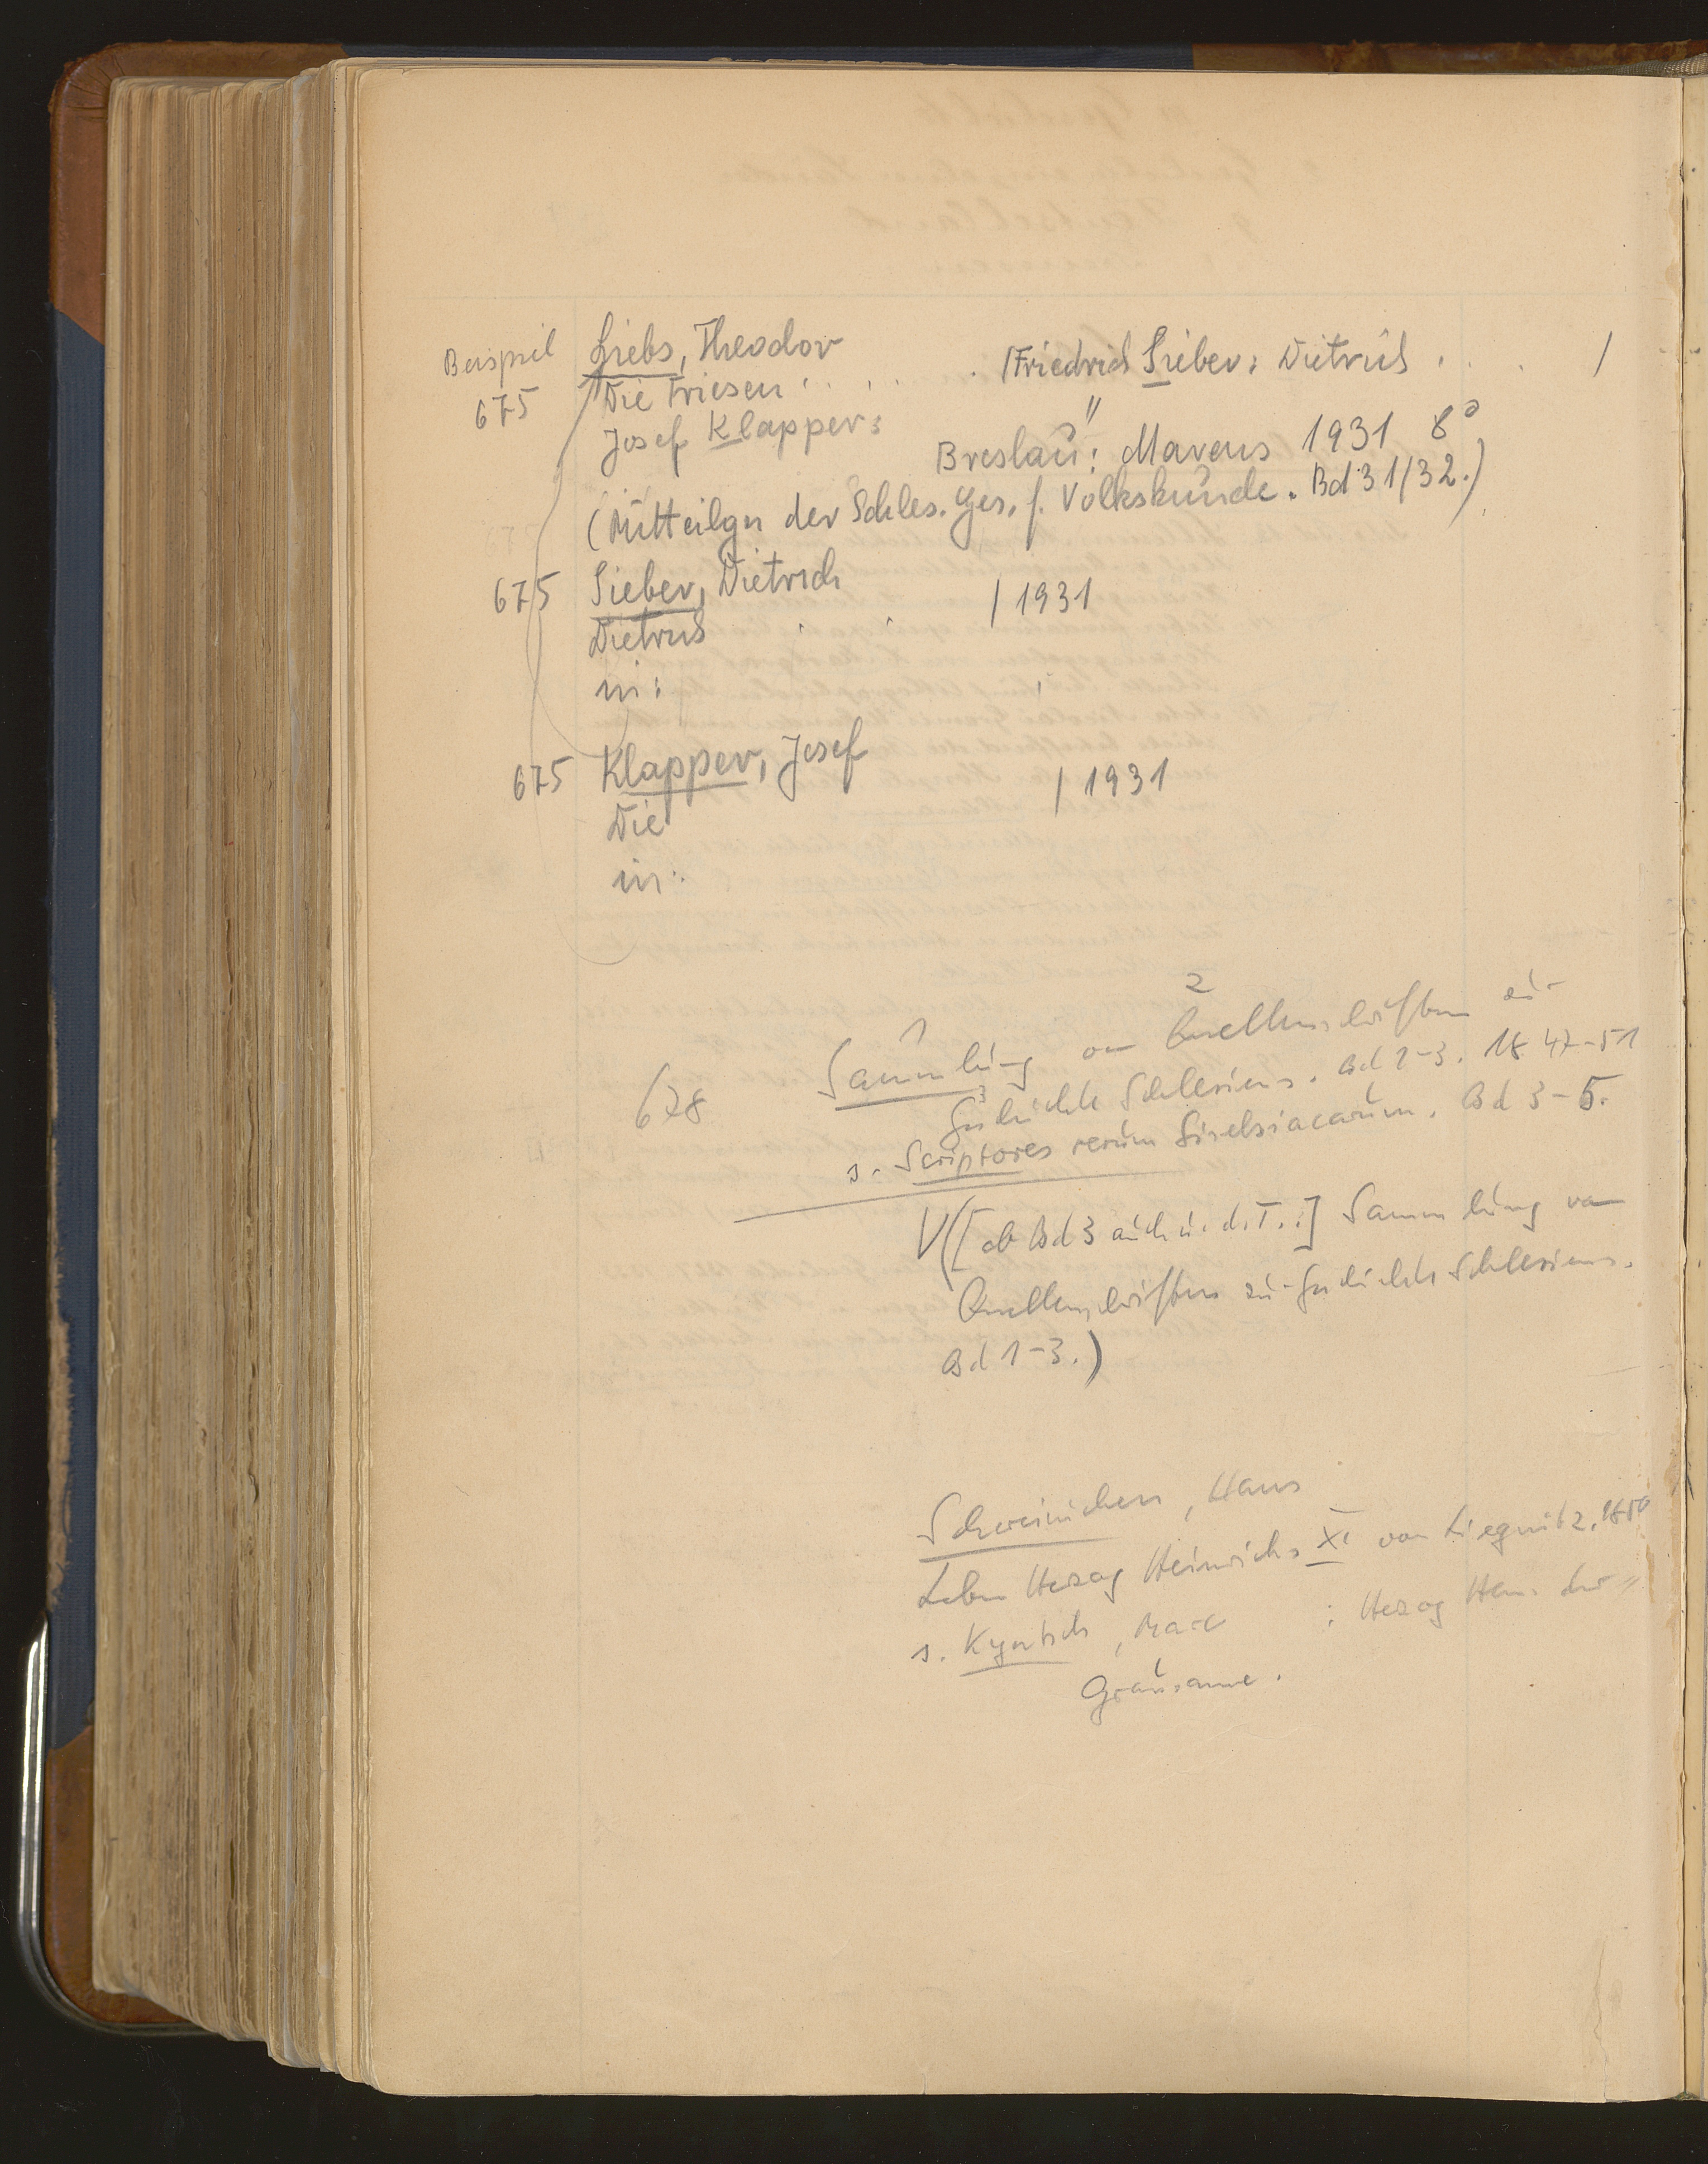 Beispiel Siebs, Theodor
675 Die Friesen . . . . . . /Friedrich Sieber: Dietrich . . . /
Josef Klapper:
Breslau: Marcus 1931 8°
(Mitteilgn der Schles. Ges. f. Volkskunde. Bd 31/32.)
675 Sieber, Dietrich
/ 1931
Dietrich
in:
675 Klapper, Josef
/ 1931
Die
in:
678 Sammlung von Quellenschriften zur
Geschichte Schlesiens. Bd 1-3. 1847-51
s. Scriptores rerum Silesiacarum. Bd 3-5.
V([ab Bd 3 auch u. d. T.:] Sammlung von
Quellenschriften zur Geschichte Schlesiens.
Bd 1-3.)
Schweinichen, Hans
Leben Herzog Heinrichs XI. von Liegnitz.
s. : Herzog
Grausame.